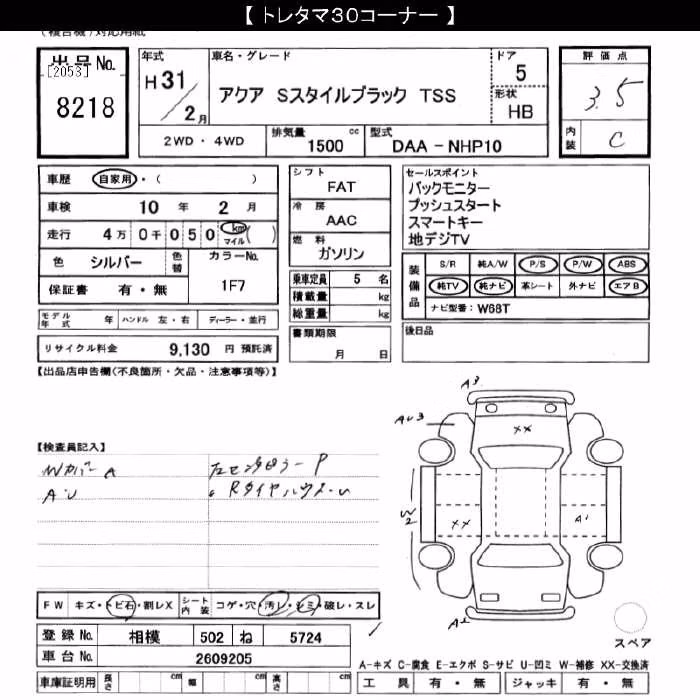 【 トレタマ30コーナー 】
(複合機)対応用紙
出品No. [2053] 8218
年式 H 31 / 2 月
車名・グレード アクア Sスタイルブラック TSS
ドア 5
形状 HB
評価点 3.5
内装 C
2WD ・ 4WD
排気量 1500 cc
型式 DAA - NHP10
車歴 自家用 ・ ( )
車検 10 年 2 月
走行 4万 0千 0 5 0 km マイル ( )
色 シルバー 色替 カラーNo. 1F7
保証書 有 ・ 無
モデル年式 年 ハンドル 左 ・ 右 ディーラー ・ 並行
リサイクル料金 9,130 円 預託済
シフト FAT
冷房 AAC
燃料 ガソリン
乗車定員 5 名
積載量 kg
総重量 kg
書類期限 月 日
セールスポイント
バックモニター
プッシュスタート
スマートキー
地デジTV
装備品 S/R 純A/W P/S P/W ABS
純TV 純ナビ 革シート 外ナビ エアB
ナビ型番: W68T
後日品
【出品店申告欄(不良箇所・欠品・注意事項等)】
【検査員記入】
Wカバー A
A・U
A3
AU3
XX
W2
XX
A1
A2
スペア
FW キズ・トビ石・割レX シート内装 コゲ・穴・汚レ・シミ・破レ・スレ
登録No. 相模 502 ね 5724
車台No. 2609205
車庫証明用 長さ cm 幅 cm 高さ cm
A-キズ C-腐食 E-エクボ S-サビ U-凹ミ W-補修 XX-交換済
工具 有 ・ 無 ジャッキ 有 ・ 無